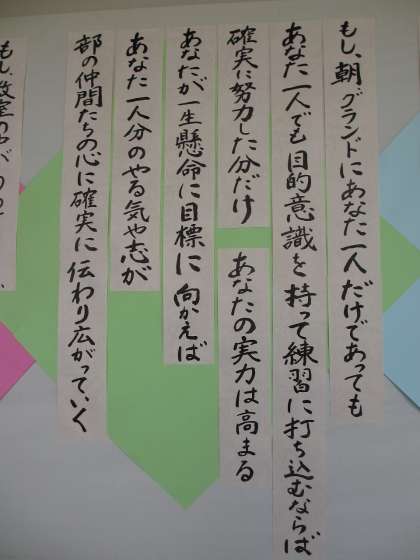 もし、朝グランドにあなた一人だけであっても
あなた一人でも目的意識を持って練習に打ち込むならば
確実に努力した分だけ
あなたの実力は高まる
あなたが一生懸命に目標に向かえば
あなた一人分のやる気や志が
部の仲間たちの心に確実に伝わり広がっていく
もし、教室の